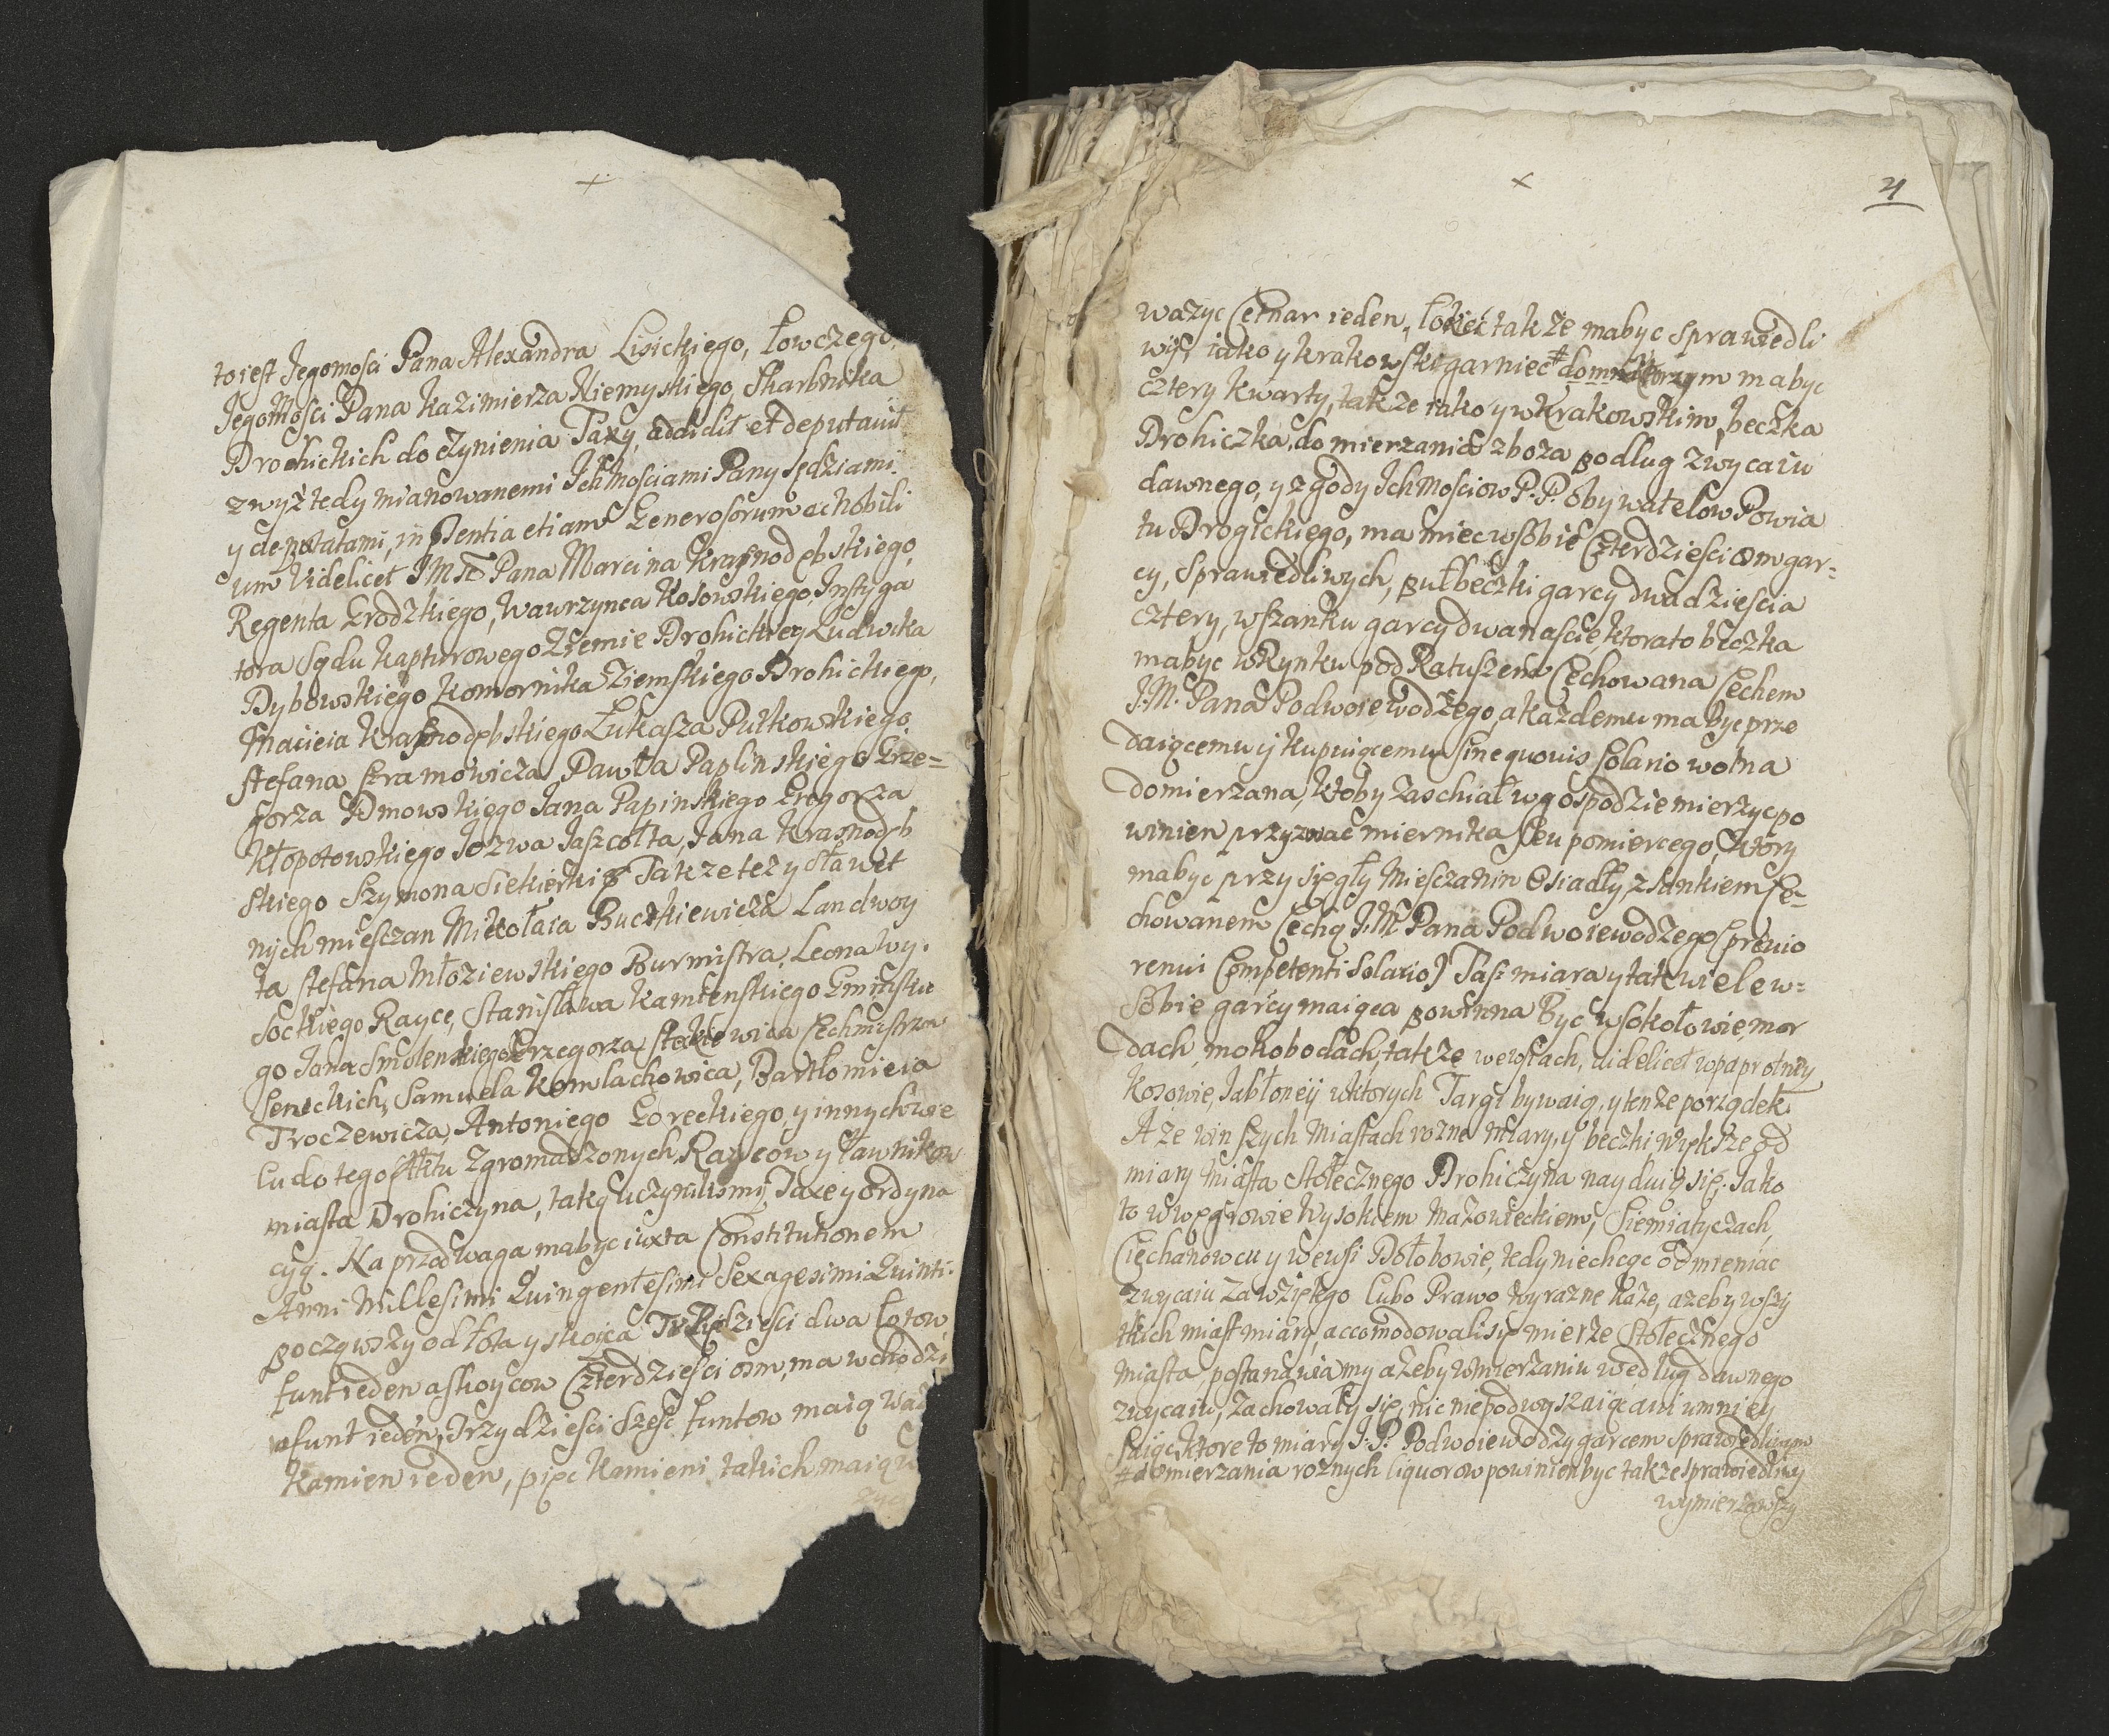 to iest Jegomosci Pana Alexandra Lisickiego, Łowczego
Jegomosci Pana Kazimierza Niemyskiego, Skarbnika
Drohickich do czynienia Taxy, addidit et deputavit
zwyż tedy mianowanemi Ichmosciami Pany Sędziami
y deputatami, in Pentia etiam Generosorum ac Nobili
um Videlicet JMci Pana Marcina Krasnodębskiego,
Regenta Grodzkiego, Wawrzynca Kosowskiego, Instyga
tora Sądu Kapturowego Zięmie Drohickiey, Ludwika
Dybowskiego Komornika Ziemskiego Drohickiego,
Macieia Krasnodębskiego Łukasza Putkowskiego
Stefana Szramowicza, Pawła Paplinskiego Grze=
gorza Dmowskiego Jana Papinskiego Gregorza
Kłopotowskiego Jozwa Jaszcołta, Jana Krasnodęb
skiego Szymona Siekierki Takze tez y Sławet
nych miesczan Mikołaia Buczkiewicza Landwoy
ta Stefana Młoziewskiego Burmistra, Leona Wy.
sockiego Rayce, Stanisława Kamienskiego Gminsku
go Jana Smolenskiego Grzegorza Steckiewica Cechmistrzow
Seneckich, Samuela Komlachowica, Bartłomieia
Troczewicza, Antoniego Goreckiego, y innych wie
lu do tego Aktu zgromadzonych, Raycow y Ławnikow
miasta Drohiczyna, taką uczynilismy Taxe y ordyna
cyą. Na przod waga mabyc iuxta Constitutionem
Anni Millesimi Quingentesimi Sexagesimi Quinti.
począwszy od łota y skoyca Trzydziesci dwa Łotow
funt ieden a skoycow Czterdziesci osm, ma wchodzi
funt ieden, Trzydziesci szesc funtow maią waz
Kamien ieden, pięc Kamieni takich maią w
zyc
21
wazyc Cetnar ieden, łokiec takze mabyc sprawiedli
wy, iako y krakowski garniec # w ktorym mabyc
cztery kwarty, takze iako y w Krakowskim, beczka
Drohiczka, do mierzania zboza podlug zwycaiu
dawnego, y zgody Ichmosciow P. P. obywatelow Powia
tu Drogickiego, ma miec w sobie Czterdziesci osm gar=
cy, sprawiedliwych, pułbeczki garcy dwadziescia
cztery, w szanku garcy dwanascie, ktorato beczka
mabyc w Rynku pod Ratuszem Cechowana Cechem
J. M. Pana Podwoiewodzego, a kazdemu ma byc prze
daiącemu y kupuiącemu sine quovis Solario wolna
do mierzana, ktoby zas chiał w gospodzie mierzyc po
winien przyznac miernika seu pomiercego, ktory
mabyc przysięgły Miesczanin Osiadły, z sankiem Ce=
chowanem Cechą J. M. Pana Podwoiewodzego (previo
renui Competenti Solario) Tasz miara y tak wiele w=
sobie garcy maiąca powinna Byc w Sokołowie, mor
dach, mokobodach, takze we wsiach, videlicet w paprotney
Kosowie, Jabłoneij w ktorych Targi bywaią, y tenze porządek
A ze w in szych Miastach rozne miary, y beczki większe od
miary Miasta Stołecznego Drohiczyna nayduią się. Jako
to w Węgrowie Wysokiem Mazowieckiem, Siemiatyczach,
Ciechanowcu y we wsi Dołobowie, tedy niechcąc odmieniac
zwycaiu zawziętego lubo Prawo wyrazne kaze, azeby wszy
tkich miast miary, accomodowali się mierze Stołecznego
miasta, postanawiamy azeby w mierzaniu według dawnego
zwycaiu, zachowały się, nic niepodwyszaiąc ani umniey
szaiąc, ktore to miary J. P. Podwoiewodzy garcem sprawiedliwym
# do mierzania roznych liquorow powinien byc takze sprawiedliwy
wymierzawszy